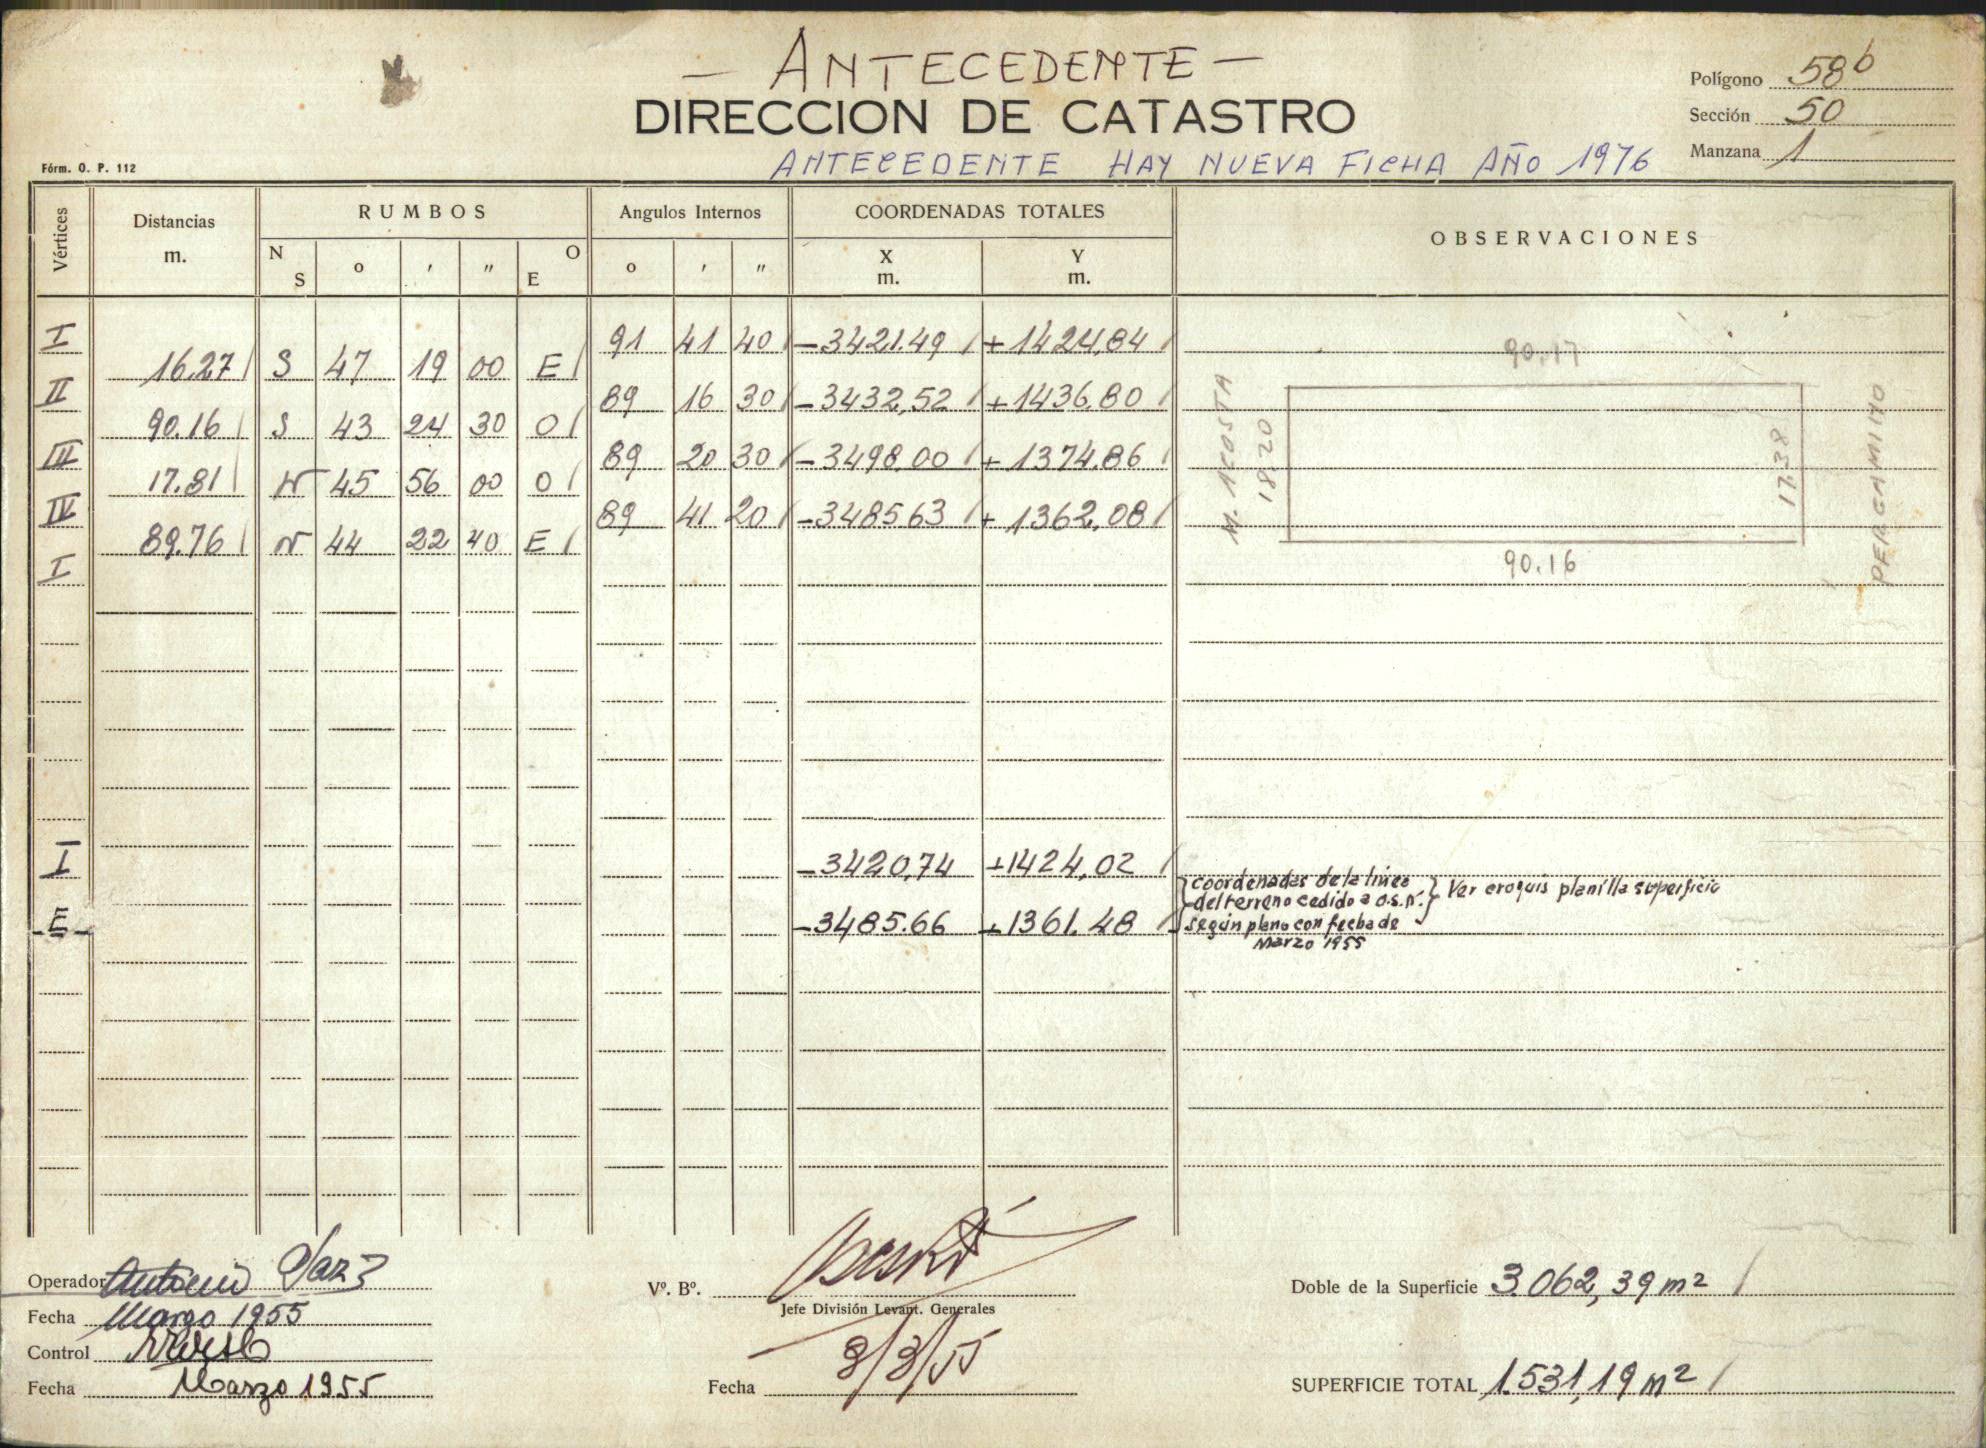 — ANTECEDENTE —
DIRECCION DE CATASTRO
ANTECEDENTE HAY NUEVA FICHA AÑO 1976
Polígono 58 b
Sección 50
Manzana 1
Fórm. O. P. 112
Vértices
Distancias m.
RUMBOS
N S ° ' " E O
Angulos Internos
° ' "
COORDENADAS TOTALES
X m.
Y m.
OBSERVACIONES
I 91 41 40 -3421.49 +1424,84
16.27 S 47 19 00 E
II 89 16 30 -3432,52 +1436.80
90.16 S 43 24 30 O
III 89 20 30 -3498.00 +1374.86
17.81 N 45 56 00 O
IV 89 41 20 -3485.63 +1362,08
89.76 N 44 22 40 E
I
90.17
M. ACOSTA
18.20
17.38
PERGAMINO
90.16
I -3420,74 +1424,02
E -3485.66 +1361.48
coordenadas de la linea
del terreno cedido a o.s.n.
según plano con fecha de
Marzo 1955
Ver croquis planilla superficie
Operador Antonio
Fecha Marzo 1955
Control
Fecha Marzo 1955
Vº. Bº.
Jefe División Levant. Generales
Fecha 8/3/55
Doble de la Superficie 3.062,39 m2
SUPERFICIE TOTAL 1.531,19 m2